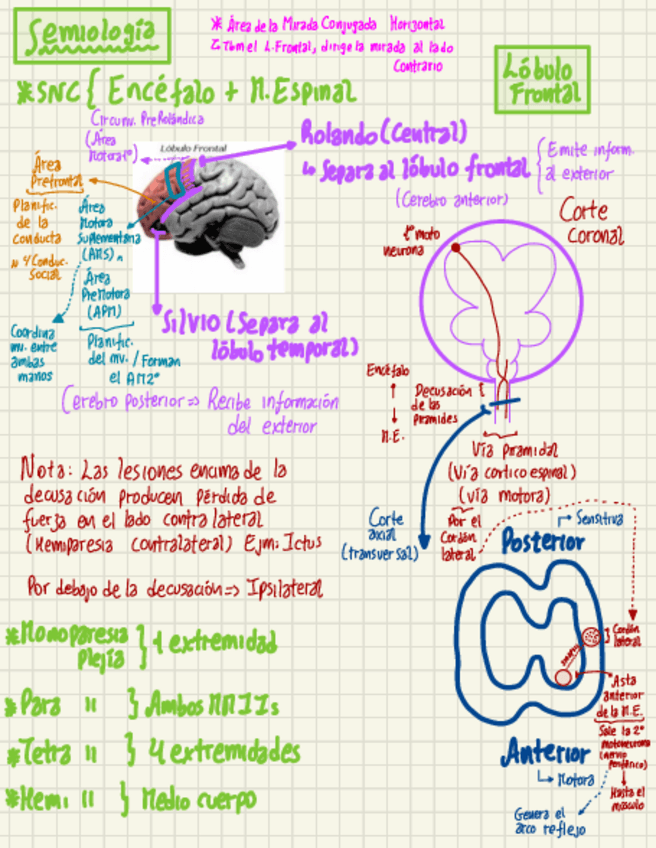 Semiología
* Área de la Mirada Conjugada Horizontal
Tbm el L. Frontal, dirige la mirada al lado
Contrario
Lóbulo
Frontal
*SNC { Encéfalo + M. Espinal
Circunv. PreRolándica
(Área
Motora 1°)
Lóbulo Frontal
Rolando (Central)
↳ Separa al lóbulo frontal
(Cerebro anterior)
{ Emite inform.
al exterior
Área
Prefrontal
Planific.
de la
conducta
y Conduc.
Social
Área
Motora
Suplementaria
(AMS)
Área
PreMotora
(APM)
Coordina
mv. entre
ambas
manos
Planific.
del mv. / Forman
el AM2°
Silvio (Separa al
lóbulo temporal)
Cerebro Posterior => Recibe información
del exterior
Corte
Coronal
1° moto
neurona
Encéfalo
↑
↓
M.E.
Decusación {
de las
piramides
Vía Piramidal
(Vía cortico espinal)
(vía motora)
Por el
Cordón
lateral
Nota: Las lesiones encima de la
decusación producen pérdida de
fuerza en el lado contralateral
(Hemiparesia contralateral) Ejm: Ictus
Por debajo de la decusación => Ipsilateral
Corte
axial
(transversal)
Posterior
→ Sensitiva
} Cordón
lateral
sinapsis
Asta
anterior
de la M.E.
Sale la 2°
motoneurona
(nervio
periférico)
Hasta el
músculo
Anterior
↳ Motora
Genera el
arco reflejo
*Monoparesia
plejía } 1 extremidad
*Para " } Ambos MMIIs
*Tetra " } 4 extremidades
*Hemi " } Medio cuerpo